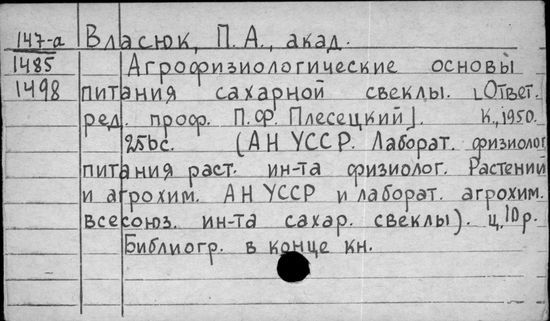 147-а Власюк, П. А., акад.
1485 Агрофизиологические основы
1498 питания сахарной свеклы. [Ответ.
ред. проф. П. Ф. Плесецкий]. К., 1950.
256с. (АН УССР. Лаборат. физиолог
питания раст. ин-та физиолог. Растений
и агрохим. АН УССР и лаборат. агрохим.
всесоюз. ин-та сахар. свеклы). ц. 10р.
Библиогр. в конце кн.